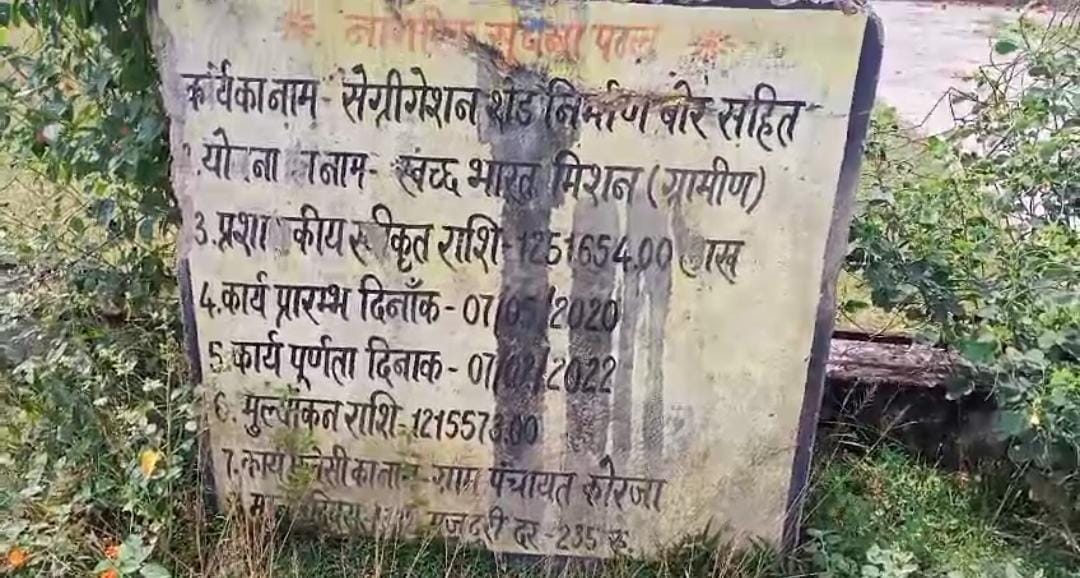 नागरिक सूचना पटल
कार्यका नाम - सेग्रीगेशन शेड निर्माण बोर सहित
यो ना नाम - स्वच्छ भारत मिशन (ग्रामीण)
3. प्रशा कीय स्वीकृत राशि - 1251654.00 लाख
4. कार्य प्रारम्भ दिनाँक - 07/05/2020
5. कार्य पूर्णता दिनाक - 07/02/2022
6. मुल्यांकन राशि - 1215573.00
7. कार्य एजेंसी का नाम - ग्राम पंचायत कोरजा
मजदूरी दर - 235 रू.